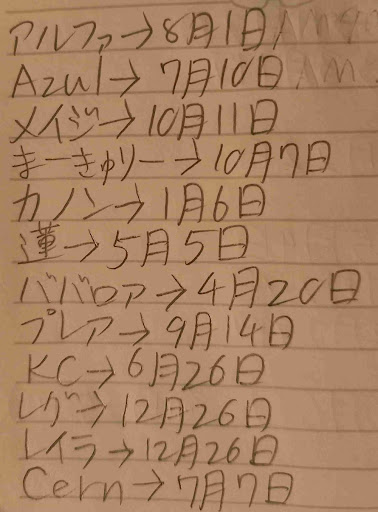 アルファ→8月1日
Azul→7月10日
メイジ→10月11日
まーきゅりー→10月7日
カノン→1月6日
蓮→5月5日
ババロア→4月20日
プレア→9月14日
KC→6月26日
レグ→12月26日
レイラ→12月26日
Cern→7月7日